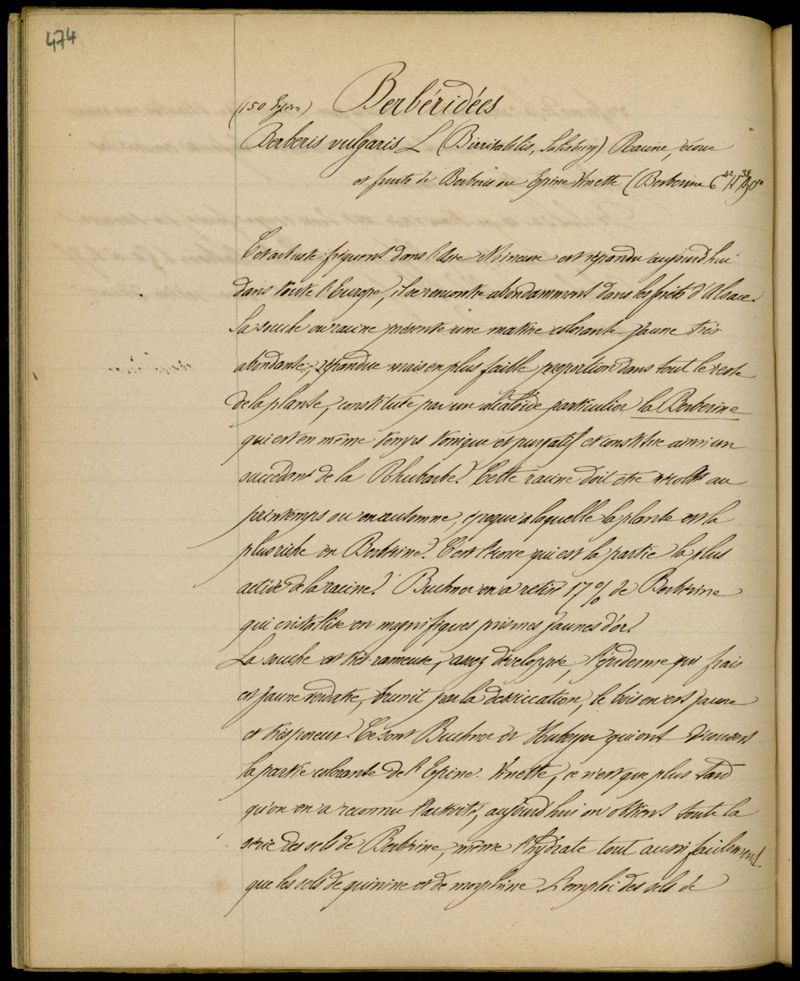 474
Berbéridées
(150 Esp.)
Berberis vulgaris L (Birritabilis, Salisbury) Racine, écorce
et fruits de Berberis ou Epine Vinette (Berberine C 42 H 18 Az O 9
Cet arbuste fréquent dans l'Asie Mineure est répandu aujourd'hui
dans toute l'Europe, il se rencontre abondamment dans les forêts d'Alsace.
La souche ou racine présente une matière colorante jaune très
abondante, répandue mais en plus faible proportion dans tout le reste
de la plante, constituée par un alcaloïde particulier la Berberine
qui est en même temps tonique et purgatif et constitue ainsi un
succédané de la Rhubarbe. Cette racine doit être récoltée au
printemps ou en automne, époque a laquelle la plante est la
plus riche en Berberine. C'est l'écorce qui est la partie la plus
active de la racine. Buchner en a retiré 17 % de Berberine
qui cristallise en magnifiques prismes jaunes d'or.
La souche est très rameuse, assez développée, l'épiderme qui frais
est jaune verdatre, brunit par la dessiccation, le bois en est jaune
et très poreux. Ce sont Buchner et qui ont découvert
la partie colorante de l'Epine Vinette, ce n'est que plus tard
qu'on en a reconnu l'activité, aujourd'hui on obtient toute la
série des sels de Berberine, même l'hydrate tout aussi facilement
que les sels de quinine et de morphine L'emploi des sels de